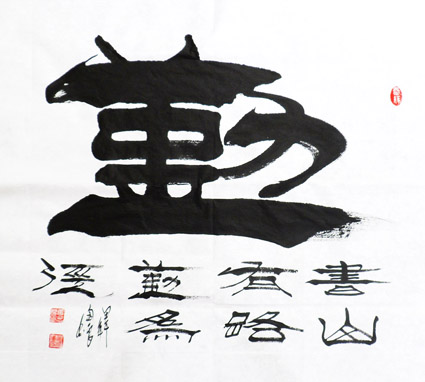 勤
書山
有路
勤為
徑